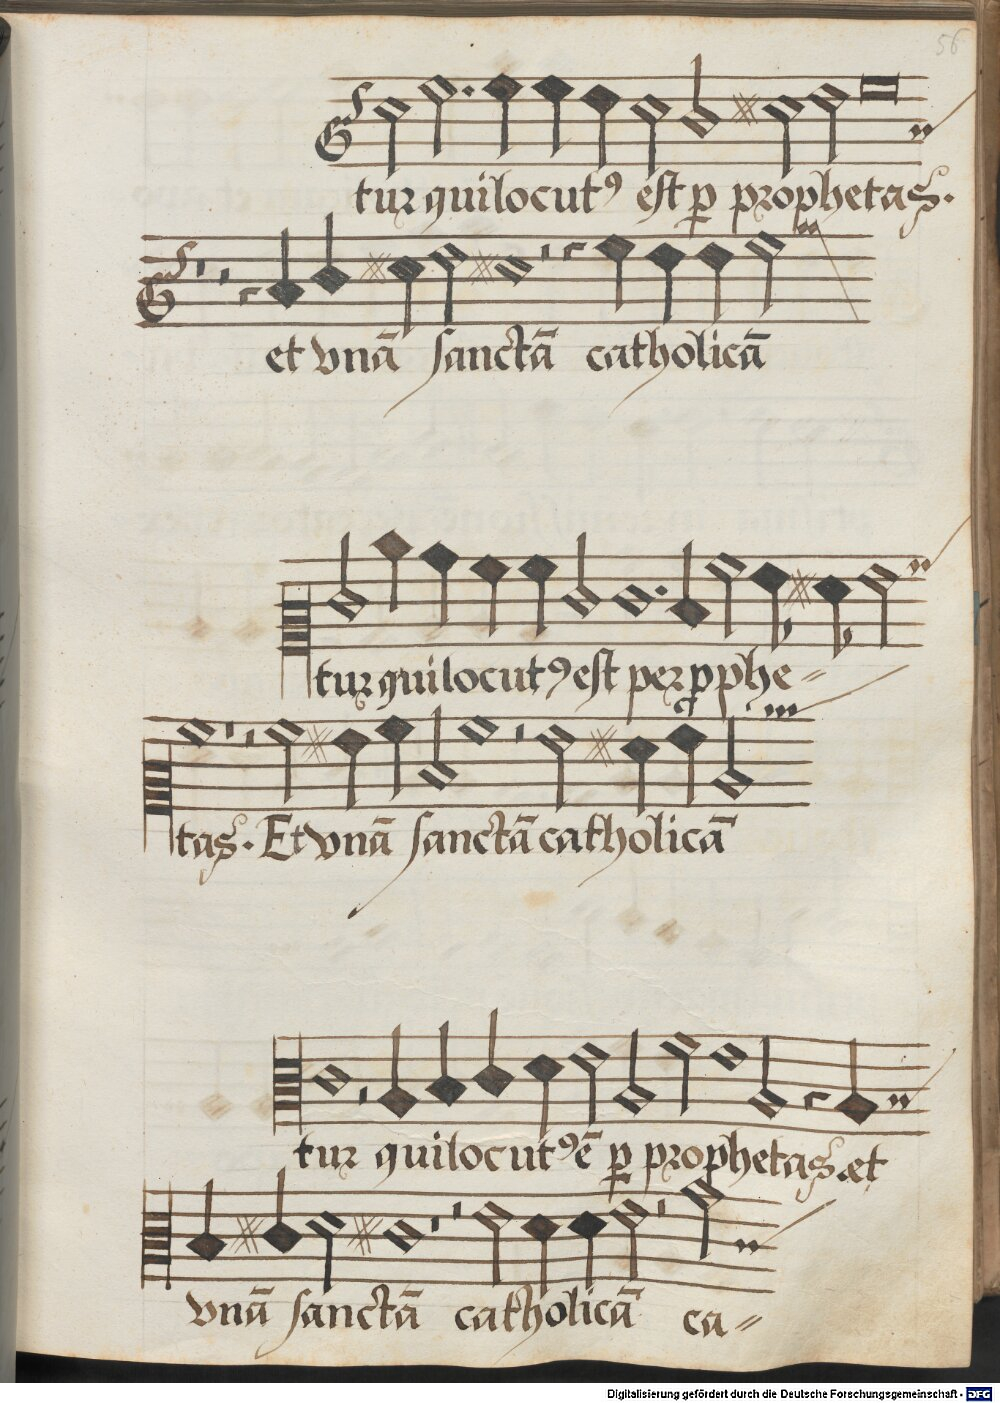 56
tur qui locutꝰ est ꝑ prophetas.
et vnā sanctā catholicā
tur qui locutꝰ est per ꝓphe=
tas. Et vnā sanctā catholicā
tur qui locutꝰ ē ꝑ prophetas. et
vnā sanctā catholicā ca=
Digitalisierung gefördert durch die Deutsche Forschungsgemeinschaft - DFG